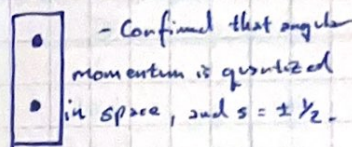 - Confirmed that angular
momentum is quantized
in space, and s = ± 1/2.